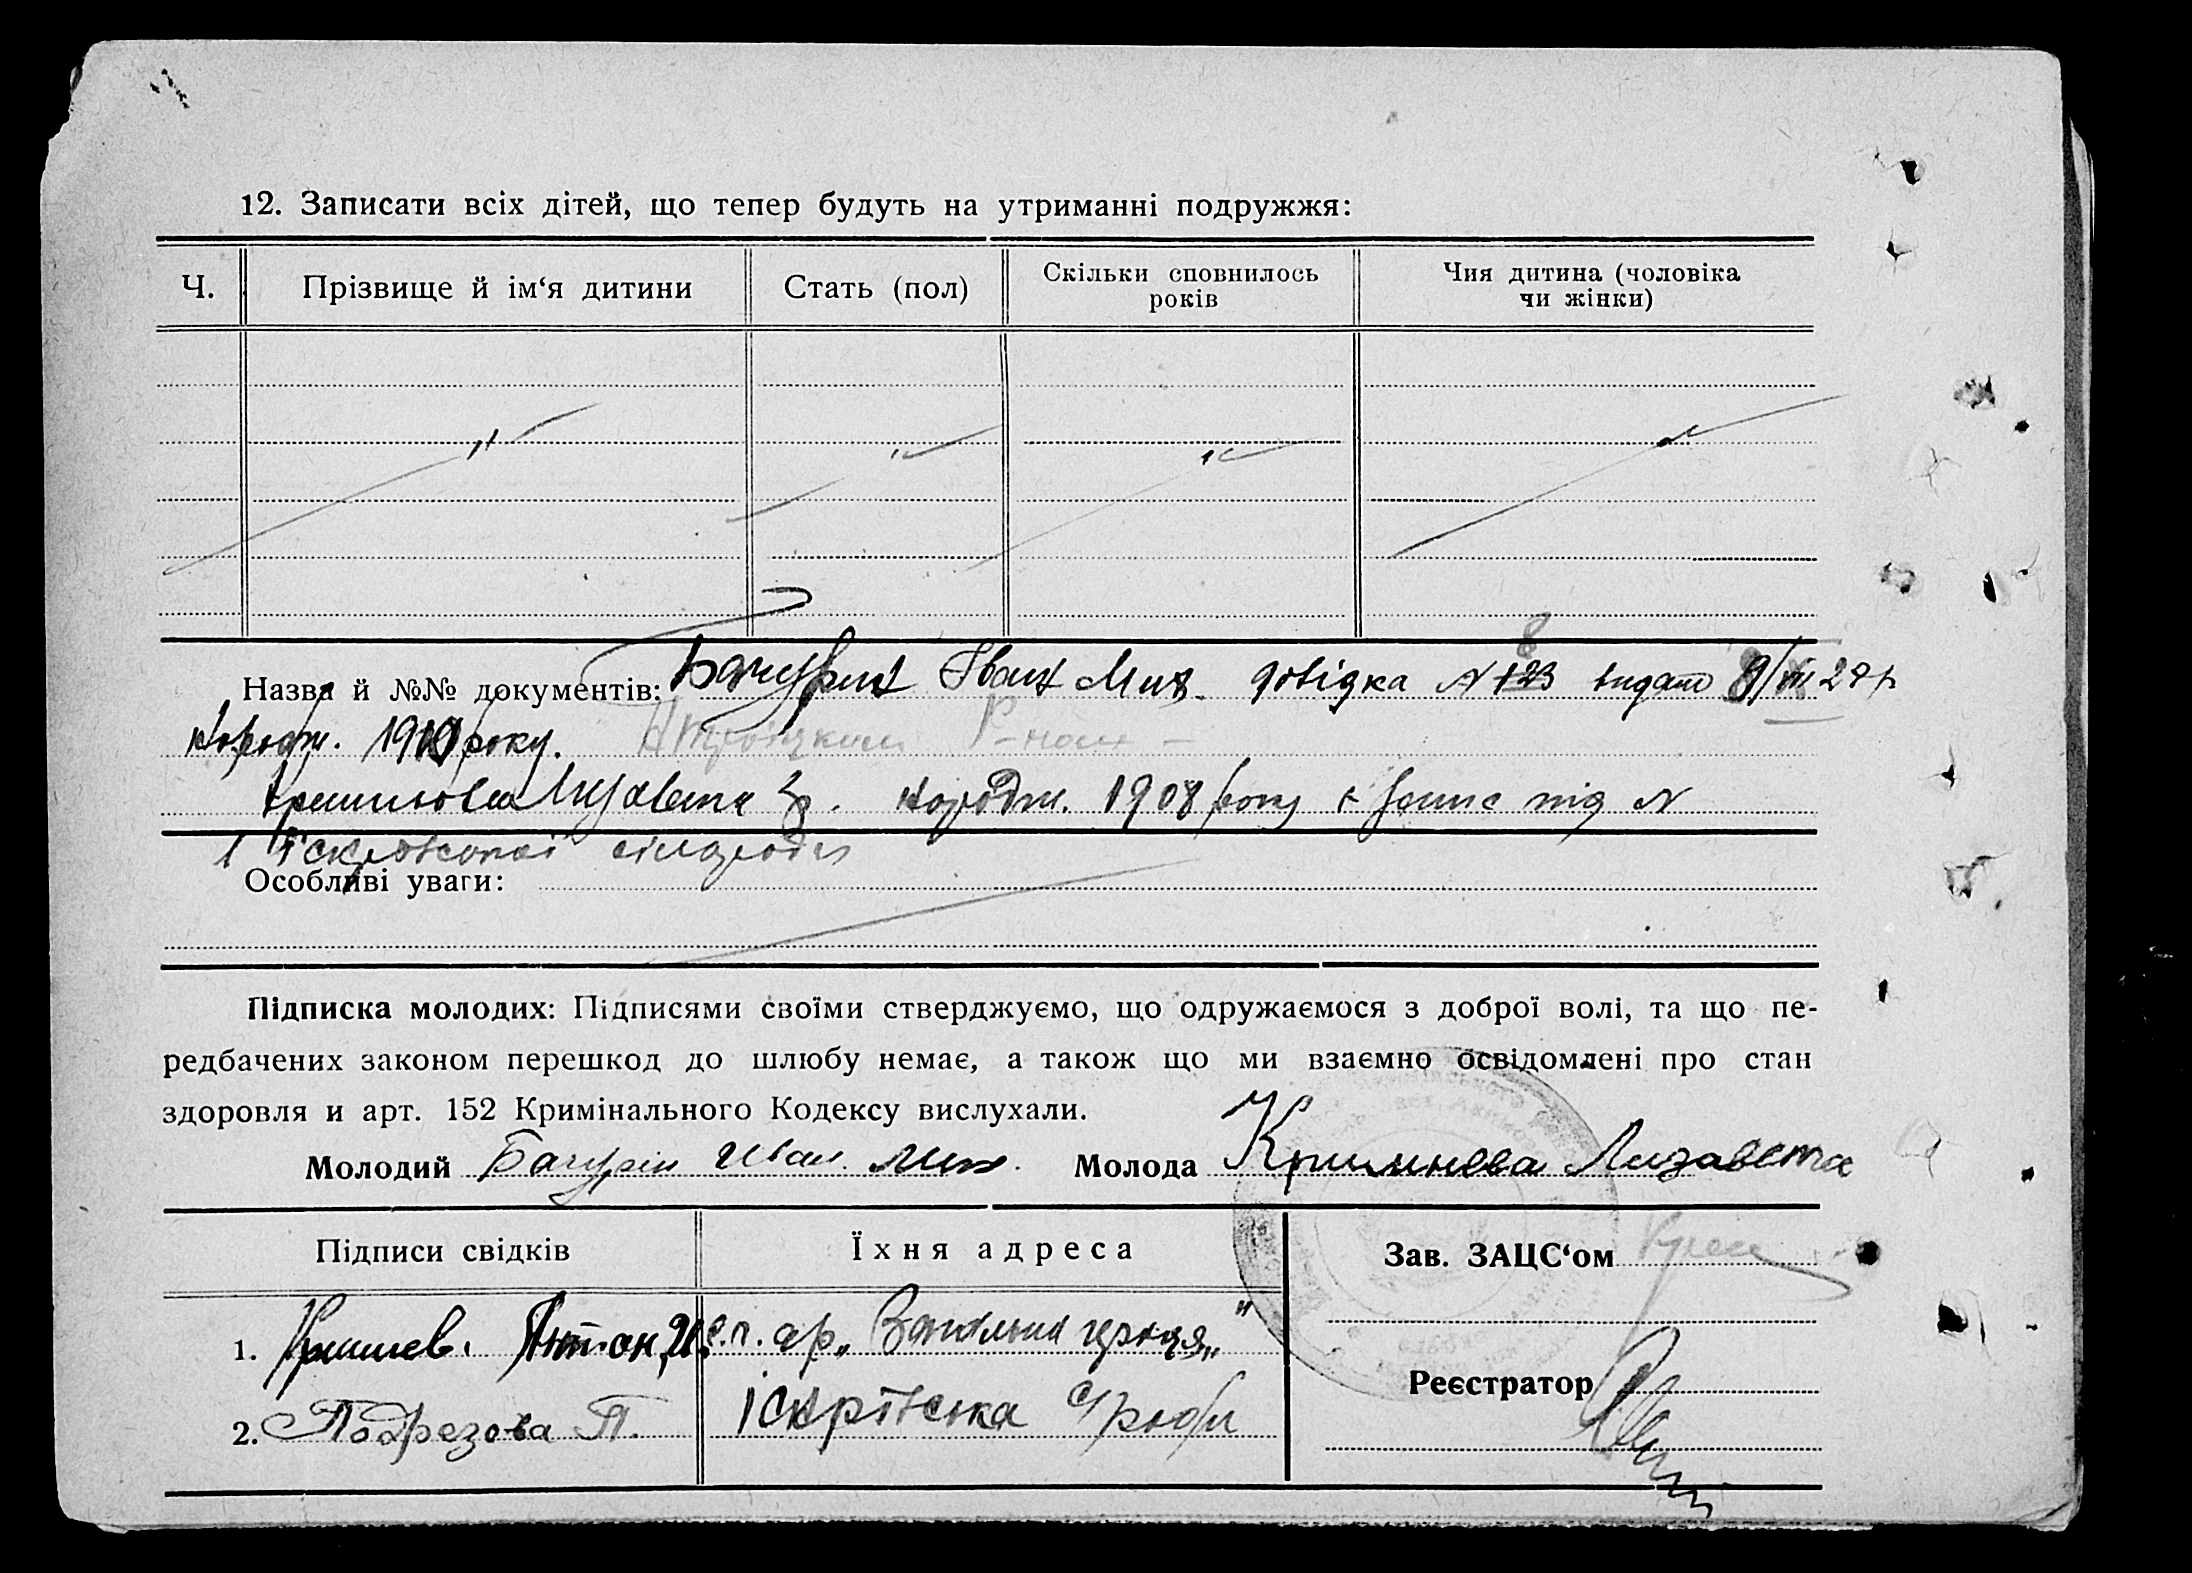 12. Записати всіх дітей, що тепер будуть на утриманні подружжя:
Ч. Прізвище й ім‘я дитини Стать (пол) Скільки сповнилось років Чия дитина (чоловіка чи жінки)
Назва й №№ документів: Бачурин Іван Мих. довідка N 123 видано 29 р
народж. року. Р-ном
Лизавета народж. 1908 року запис під N
1 Іскрівської сільради
Особливі уваги:
Підписка молодих: Підписями своїми стверджуємо, що одружаємося з доброї волі, та що пе-
редбачених законом перешкод до шлюбу немає, а також що ми взаємно освідомлені про стан
здоровля и арт. 152 Кримінального Кодексу вислухали.
Молодий Бачурін Иван Мих. Молода Лизавета
Підписи свідків Їхня адреса Зав. ЗАЦС‘ом
1. Антон И. с.г. ар. „Вагальна праця„
Реєстратор
2. Подрезова П. Іскрівська с/ради